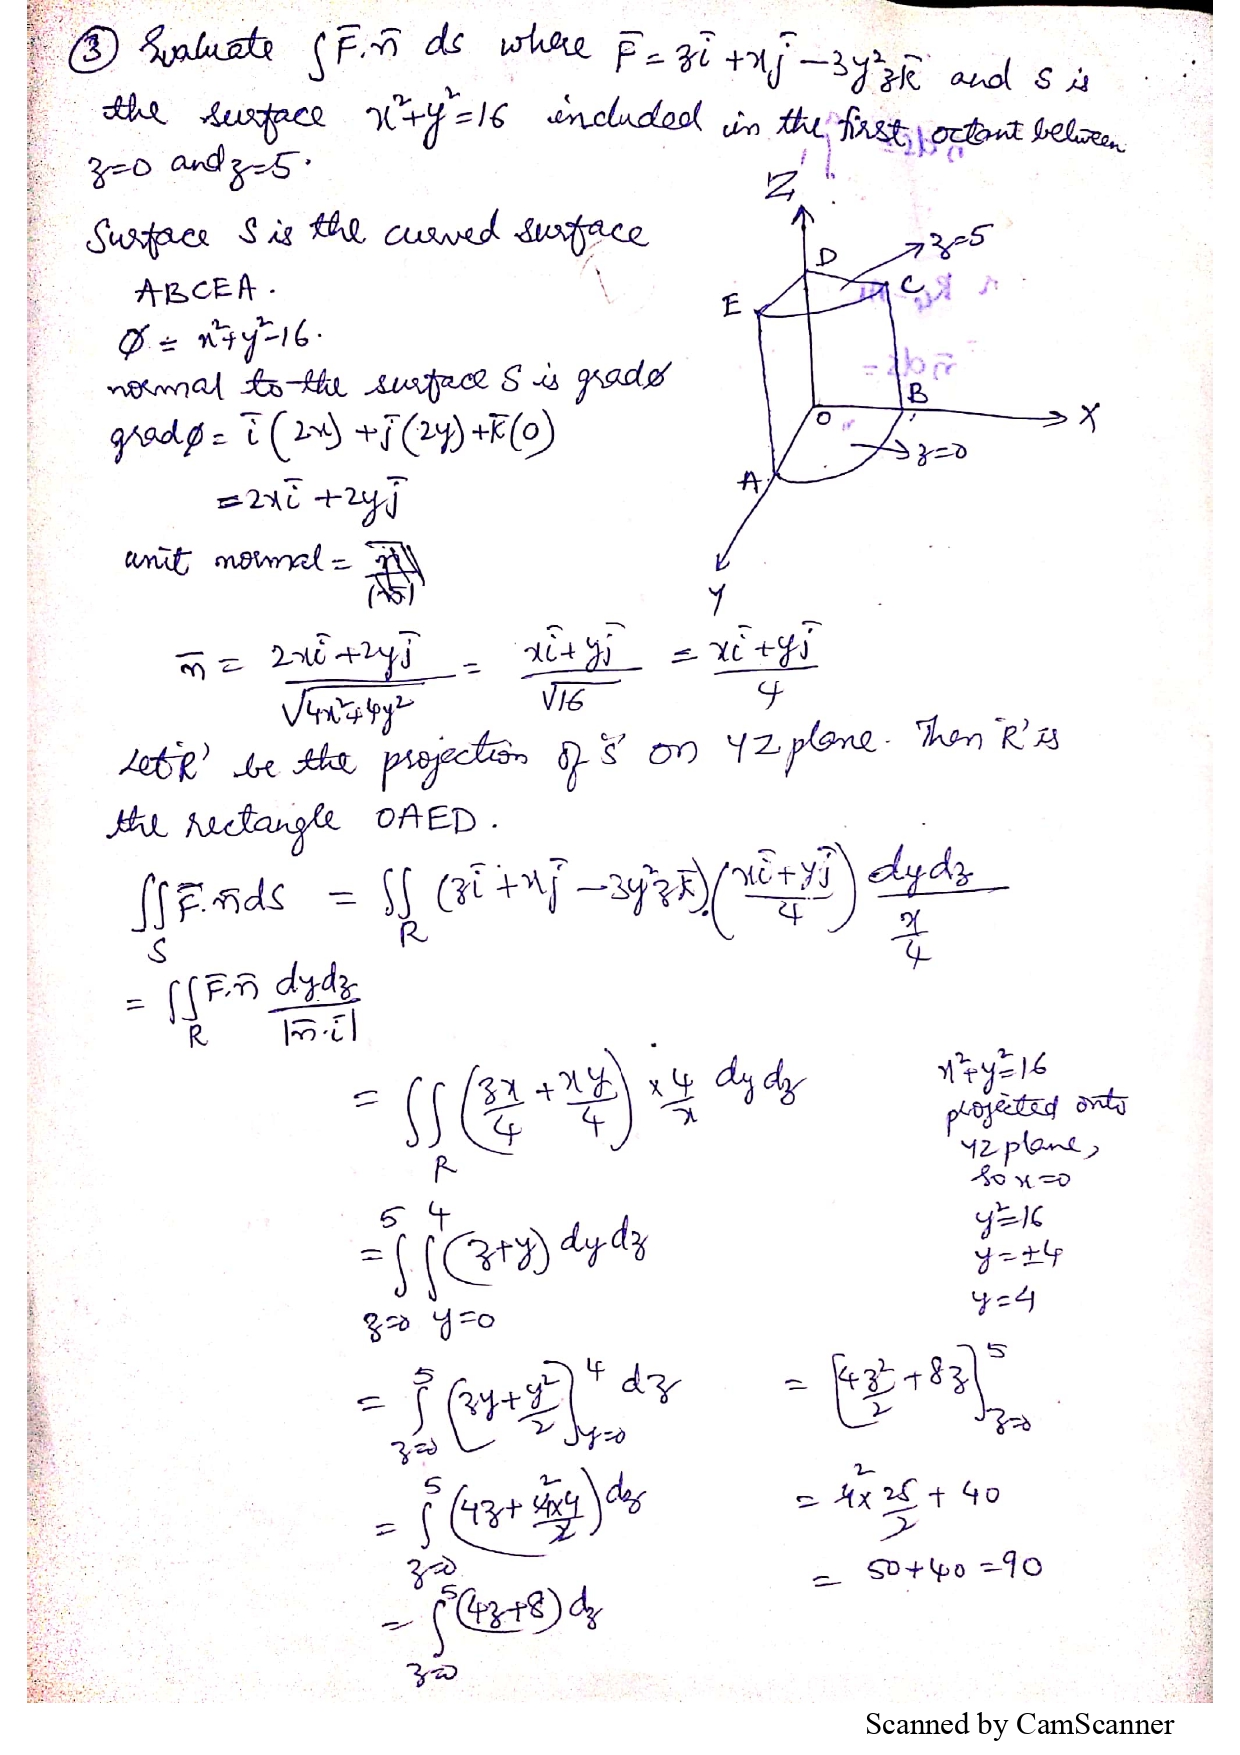 ③ Evaluate ∫ F̄.n̄ ds where F̄ = zī + xj̄ − 3y²zk̄ and S is
the surface x²+y²=16 included in the first octant between
z=0 and z=5.
Surface S is the curved surface
ABCEA.
Z
D
z=5
E
C
B
O
X
A
z=0
Y
φ = x²+y²−16.
normal to the surface S is gradφ
gradφ = ī(2x) + j̄(2y) + k̄(0)
= 2xī + 2yj̄
unit normal =
n̄ = (2xī + 2yj̄)/√(4x²+4y²) = (xī + yj̄)/√16 = (xī + yj̄)/4
Let 'R' be the projection of 'S' on YZ plane. Then 'R' is
the rectangle OAED.
∬_S F̄.n̄ ds = ∬_R (zī + xj̄ − 3y²zk̄).((xī + yj̄)/4) dydz/(x/4)
= ∬_R F̄.n̄ dydz/|n̄.ī|
= ∬_R (zx/4 + xy/4) × 4/x dydz
x²+y²=16
projected onto
YZ plane,
so x=0
y²=16
y=±4
y=4
= ∫_{z=0}^{5} ∫_{y=0}^{4} (z+y) dydz
= ∫_{z=0}^{5} (zy + y²/2)_{y=0}^{4} dz
= ∫_{z=0}^{5} (4z + 4×4/2) dz
= ∫_{z=0}^{5} (4z+8) dz
= [4z²/2 + 8z]_{z=0}^{5}
= 4 × 25/2 + 40
= 50+40 = 90
Scanned by CamScanner